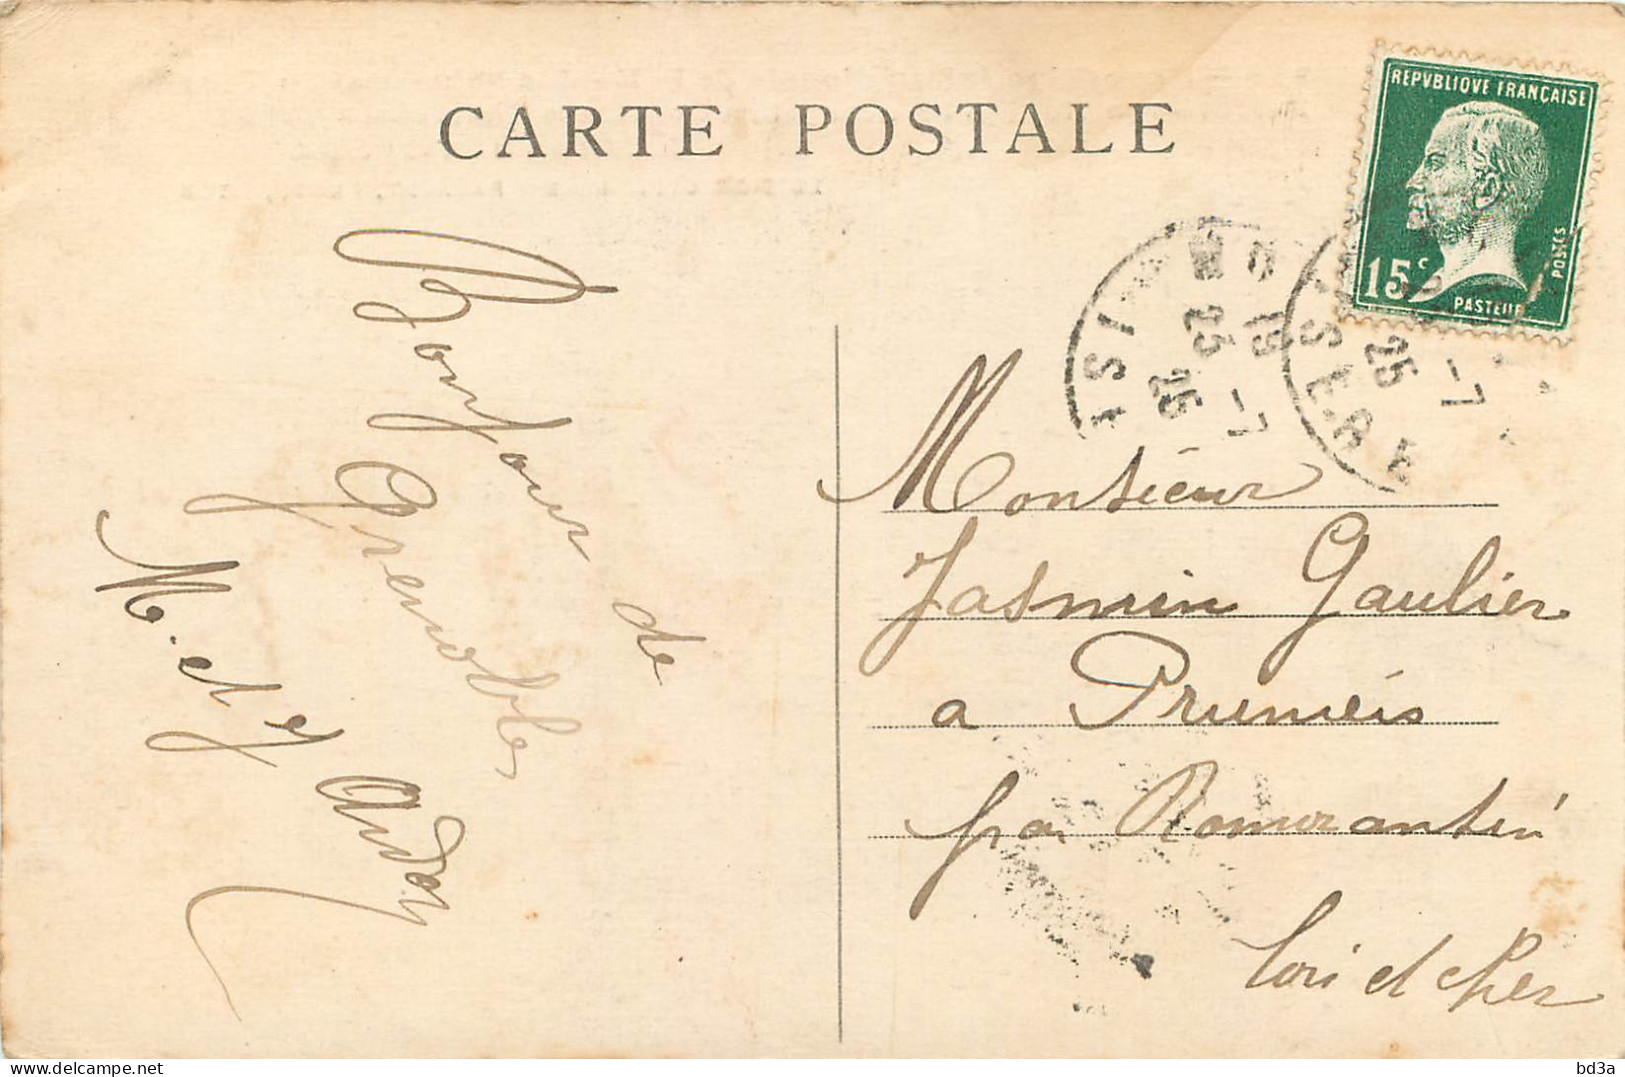 CARTE POSTALE
REPVBLIQVE FRANÇAISE
15c
POSTES
PASTEUR
19
23 -7
25
ISÈRE
-7
25
Bonjour de
Grenoble
M. et J
Monsieur
Jasmin Gaulier
a Pruniers
par Romorantin
Loir et Cher
delcampe.net
bd3a